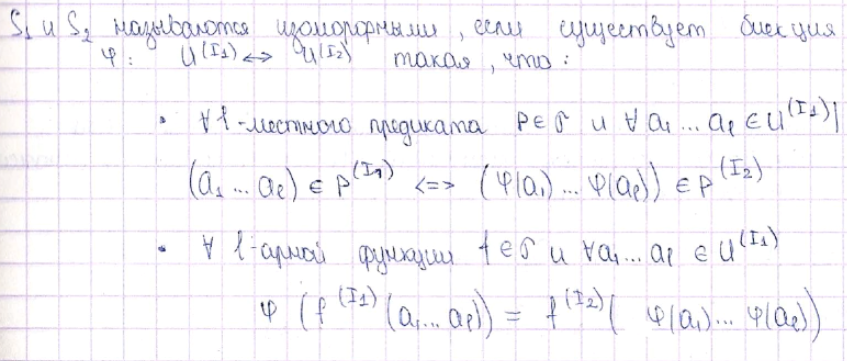 S₁ и S₂ называются изоморфными, если существует биекция
φ: U^(I₁) <=> U^(I₂) такая, что:
• ∀ l-местного предиката P∈σ и ∀ a₁...aₗ ∈ U^(I₁)|
(a₁ ... aₗ) ∈ P^(I₁) <=> (φ(a₁) ... φ(aₗ)) ∈ P^(I₂)
• ∀ l-арной функции f∈σ и ∀a₁...aₗ ∈ U^(I₁)
φ (f^(I₁) (a₁...aₗ)) = f^(I₂) ( φ(a₁)... φ(aₗ))